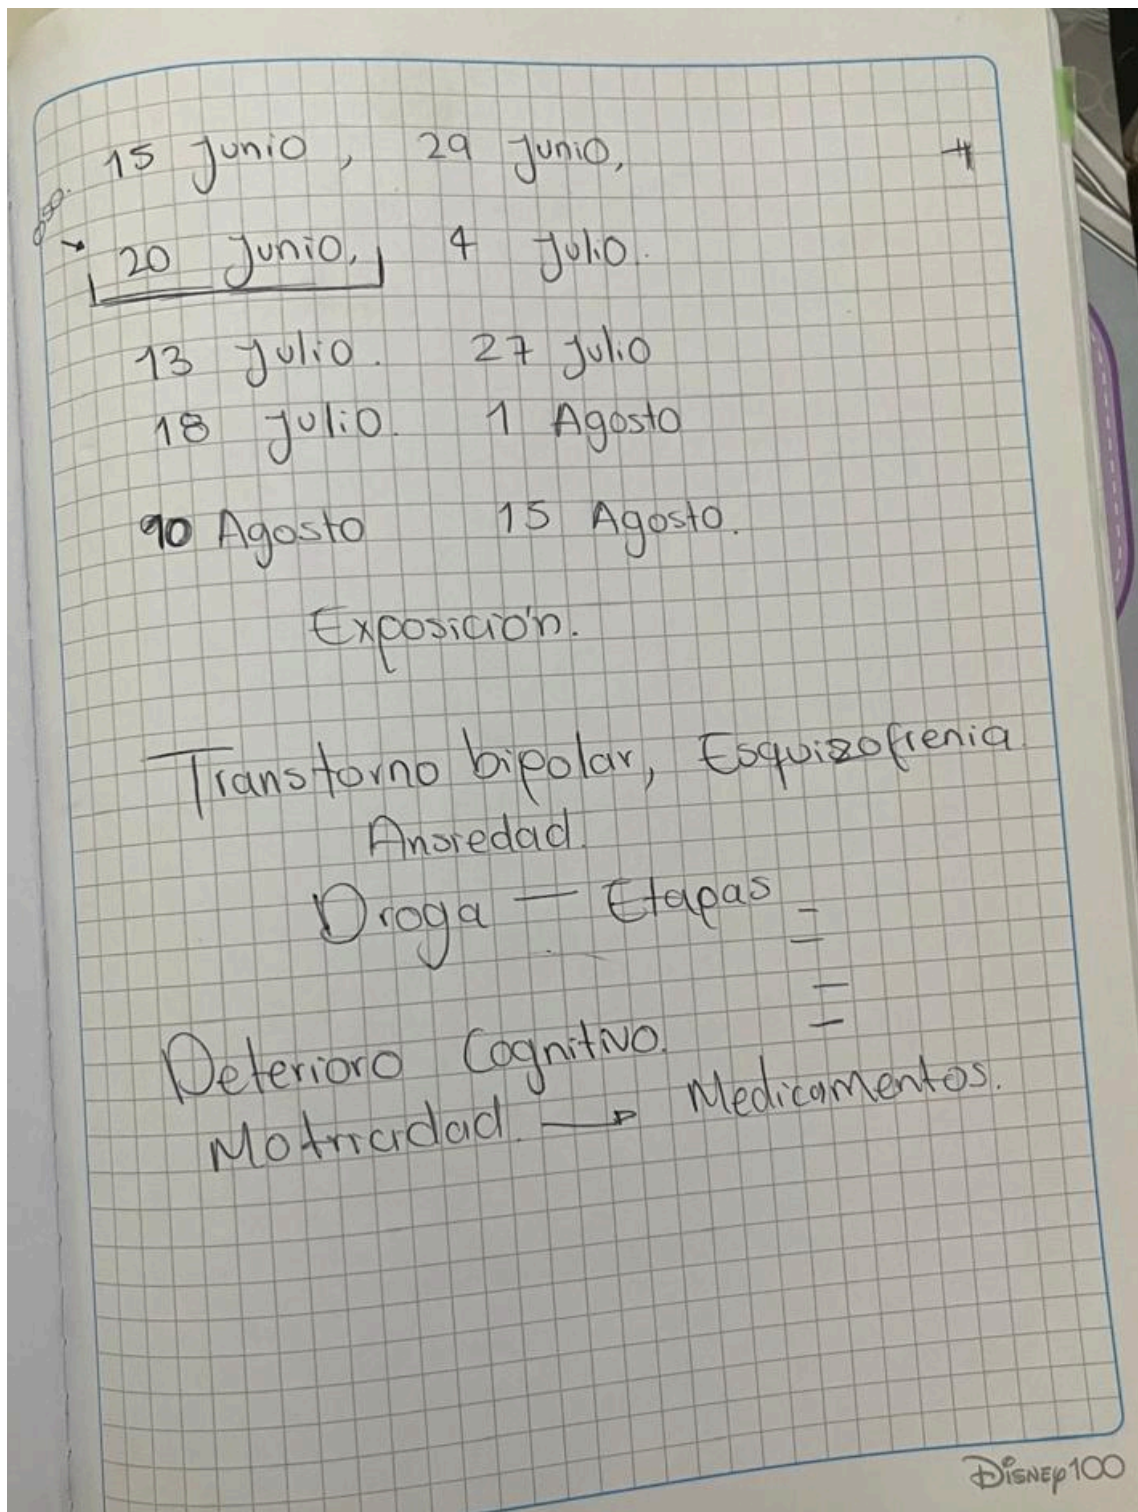 15 Junio, 29 Junio,
20 Junio, 4 Julio.
13 Julio. 27 Julio
18 Julio. 1 Agosto
10 Agosto 15 Agosto.
Exposición.
Transtorno bipolar, Esquizofrenia
Ansiedad.
Droga — Etapas
Deterioro Cognitivo.
Motricidad. → Medicamentos.
DISNEY100